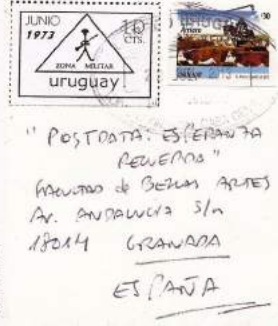 JUNIO
1973
10
cts.
ZONA MILITAR
uruguay
" POSTDATA: ESPERANZA
RECUERDO"
FACULTAD de BELLAS ARTES
AV. ANDALUCÍA S/n
18014 GRANADA
ESPAÑA